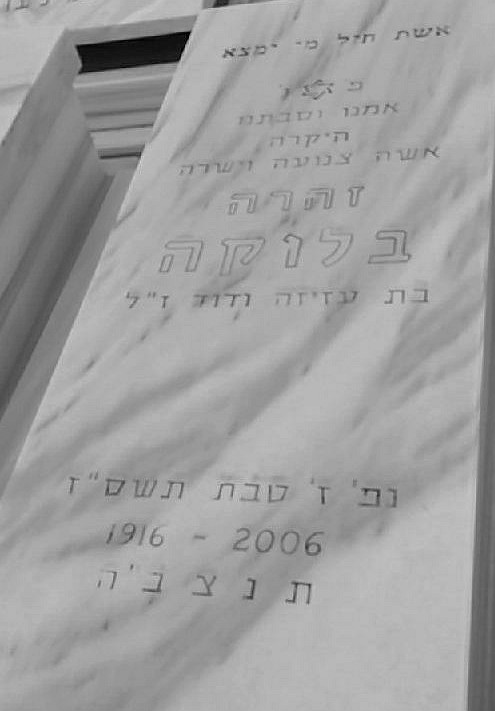 אשת חיל מי ימצא
פ נ
אמנו וסבתנו
היקרה
אשה צנועה וישרה
זהרה
בלוקה
בת עזיזה ודוד ז"ל
נפ' ז' טבת תשס"ז
1916 - 2006
ת נ צ ב 'ה